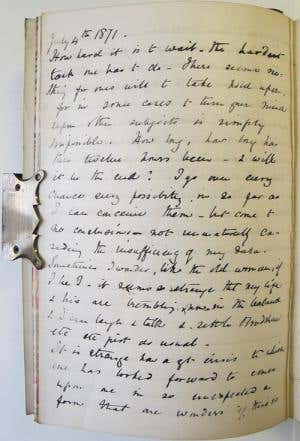 July 4th 1871.
How hard it is to wait - the hardest
task one has to do - There seems no-
thing for ones will to take hold upon.
for in some cases to turn your mind
upon other subjects is simply
impossible. How long, how long has
this twelve hours been - & will
it be the end? I go over every
chance every possibility, in so far as
I can conceive them - but come to
no conclusions - not unnaturally con-
sidering the insufficiency of my data.
Sometimes I wonder, like the old woman, if
I be I - it seems so strange that my life
& his are trembling in the balance
& I can laugh & talk & settle
etc etc just as usual.
It is strange how a gt. crisis to which
one has looked forward to comes
upon me in so unexpected a
form that one wonders if this is